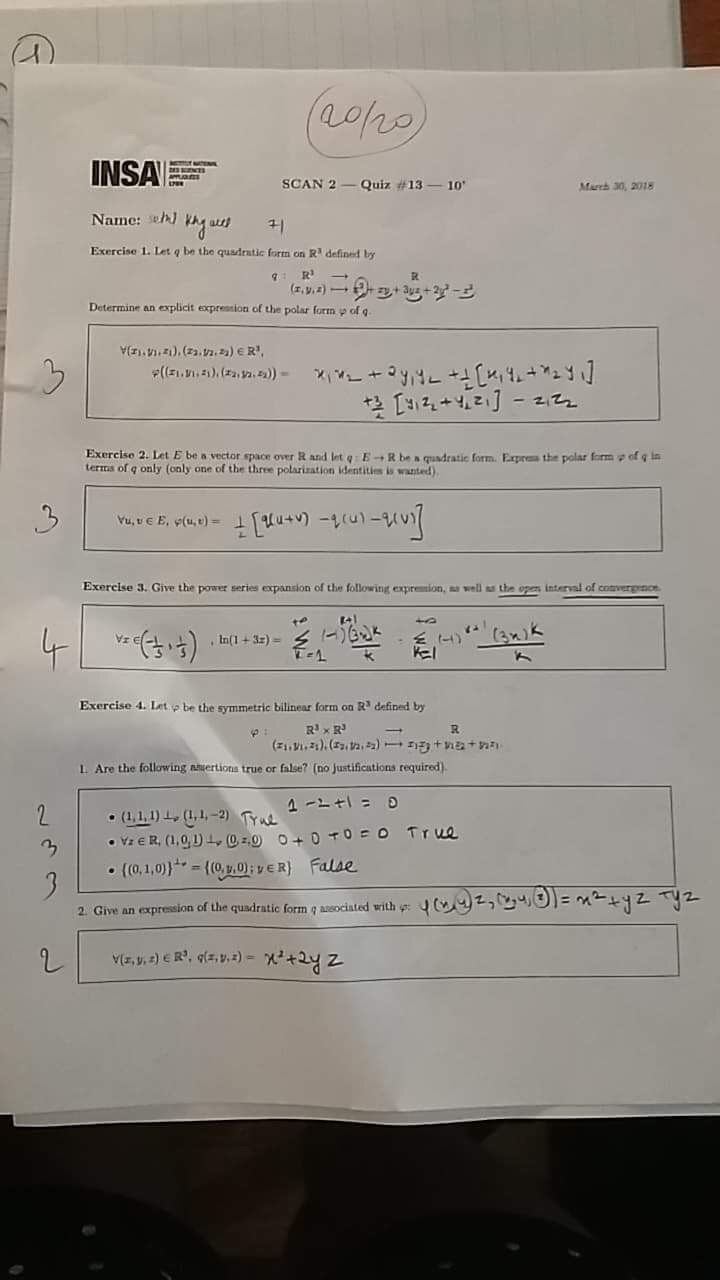 1
20/20
INSA INSTITUT NATIONAL DES SCIENCES APPLIQUÉES LYON
SCAN 2 — Quiz #13 — 10'
March 30, 2018
Name:
71
Exercise 1. Let q be the quadratic form on R³ defined by
q : R³ ⟶ R
(x, y, z) ⟼ x² + xy + 3yz + 2y² − z²
Determine an explicit expression of the polar form φ of q.
∀(x₁, y₁, z₁), (x₂, y₂, z₂) ∈ R³,
3
φ((x₁, y₁, z₁), (x₂, y₂, z₂)) = x₁x₂ + 2y₁y₂ + 1/2 [x₁y₂ + x₂y₁]
+ 3/2 [y₁z₂ + y₂z₁] − z₁z₂
Exercise 2. Let E be a vector space over R and let q : E → R be a quadratic form. Express the polar form φ of q in
terms of q only (only one of the three polarization identities is wanted).
3
∀u, v ∈ E, φ(u, v) = 1/2 [q(u+v) − q(u) − q(v)]
Exercise 3. Give the power series expansion of the following expression, as well as the open interval of convergence.
4
∀x ∈ (−1/3, 1/3), ln(1 + 3x) = Σ_{k=1}^{+∞} (−1)^{k+1} (3x)^k / k = Σ_{k=1}^{+∞} (−1)^{k+1} (3x)^k / k
Exercise 4. Let φ be the symmetric bilinear form on R³ defined by
φ : R³ × R³ ⟶ R
(x₁, y₁, z₁), (x₂, y₂, z₂) ⟼ x₁x₂ + y₁z₂ + y₂z₁.
1. Are the following assertions true or false? (no justifications required).
2 • (1, 1, 1) ⊥φ (1, 1, −2) True 1 − 2 + 1 = 0
3 • ∀z ∈ R, (1, 0, 1) ⊥φ (0, z, 0) 0 + 0 + 0 = 0 True
3 • {(0, 1, 0)}^⊥φ = {(0, y, 0); y ∈ R} False
2. Give an expression of the quadratic form q associated with φ: φ((x, y, z), (x, y, z)) = x² + yz + yz
2
∀(x, y, z) ∈ R³, q(x, y, z) = x² + 2yz